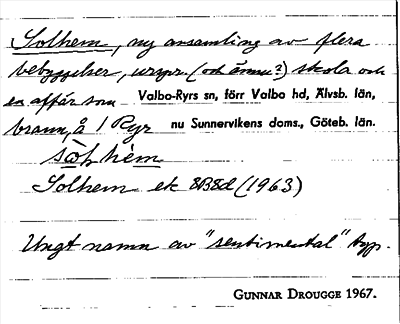 Solhem, ny ansamling av flera
bebyggelser, urspr. (och ännu?) skola och
en affär som Valbo-Ryrs sn, förr Valbo hd, Älvsb. län,
brann, å 1 Ryr nu Sunnervikens doms., Göteb. län.
sòƚhèm
Solhem ek 8B8d (1963)
Ungt namn av "sentimental" typ.
GUNNAR DROUGGE 1967.